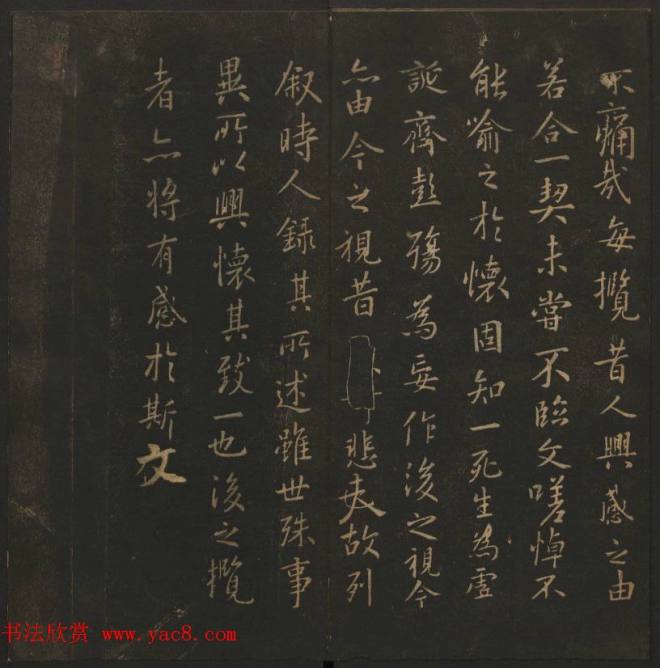 不痛哉每攬昔人興感之由
若合一契未嘗不臨文嗟悼不
能喻之於懷固知一死生為虛
誕齊彭殤為妄作後之視今
亦由今之視昔悲夫故列
叙時人錄其所述雖世殊事
異所以興懷其致一也後之攬
者亦將有感於斯文
书法欣赏 www.yac8.com